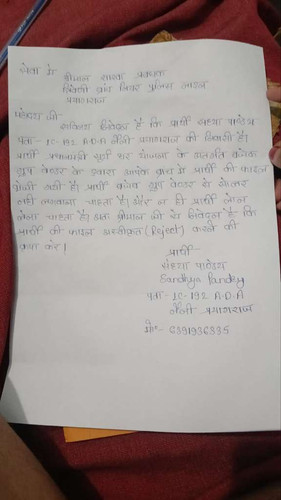 सेवा में
श्रीमान शाखा प्रबंधक
त्रिवेणी ब्रांच नियर पुलिस लाइन
प्रयागराज
महोदय जी
सविनय निवेदन है कि प्रार्थी संध्या पाण्डेय
पता - 1C-192 A.D.A नैनी प्रयागराज की निवासी है।
प्रार्थी प्रधानमंत्री सूर्य घर योजना के अंतर्गत
वेन्डर के द्वारा आपके ब्रांच में प्रार्थी की फाइल
भेजी गयी है। प्रार्थी वेन्डर से सोलर
नहीं लगवाना चाहता है। और न ही प्रार्थी लोन
लेना चाहता है। अतः श्रीमान जी से निवेदन है कि
प्रार्थी की फाइल अस्वीकृत (Reject) करने की
कृपा करें।
प्रार्थी
संध्या पाण्डेय
Sandhya Pandey
पता - 1C-192 A.D.A
नैनी प्रयागराज
मो०- 6391936835